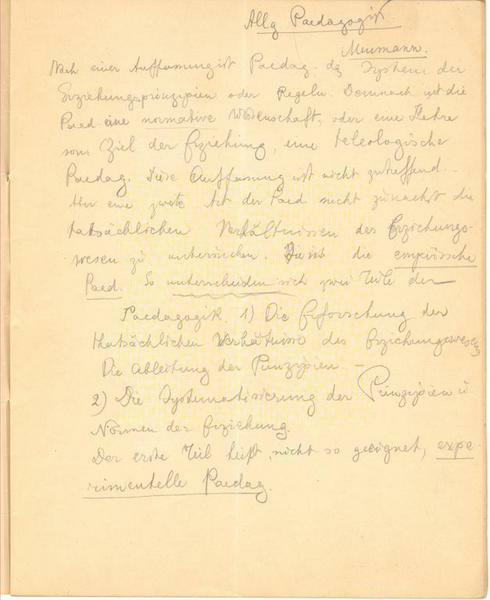 Allg Paedagogik.
Meumann.
Nach einer Auffassung ist Paedag. das System der
Erziehungsprinzipien oder Regeln. Demnach ist die
Paed eine normative Wissenschaft, oder eine Lehre
vom Ziel der Erziehung, eine teleologische
Paedag. Diese Auffassung ist nicht zutreffend.
eine zweite Art der Paed sucht zunächst die
tatsächlichen Verhältnisse des Erziehungs-
wesen zu untersuchen. die empirische
Paed. So unterscheiden sich zwei Teile der
Paedagogik 1) Die Erforschung der
thatsächlichen Verhältnisse des Erziehungswesens
Die Ableitung der Prinzipien. —
2) Die Systematisierung der Prinzipien u
Normen der Erziehung.
Der erste Teil heißt, nicht so geeignet, expe-
rimentelle Paedag.